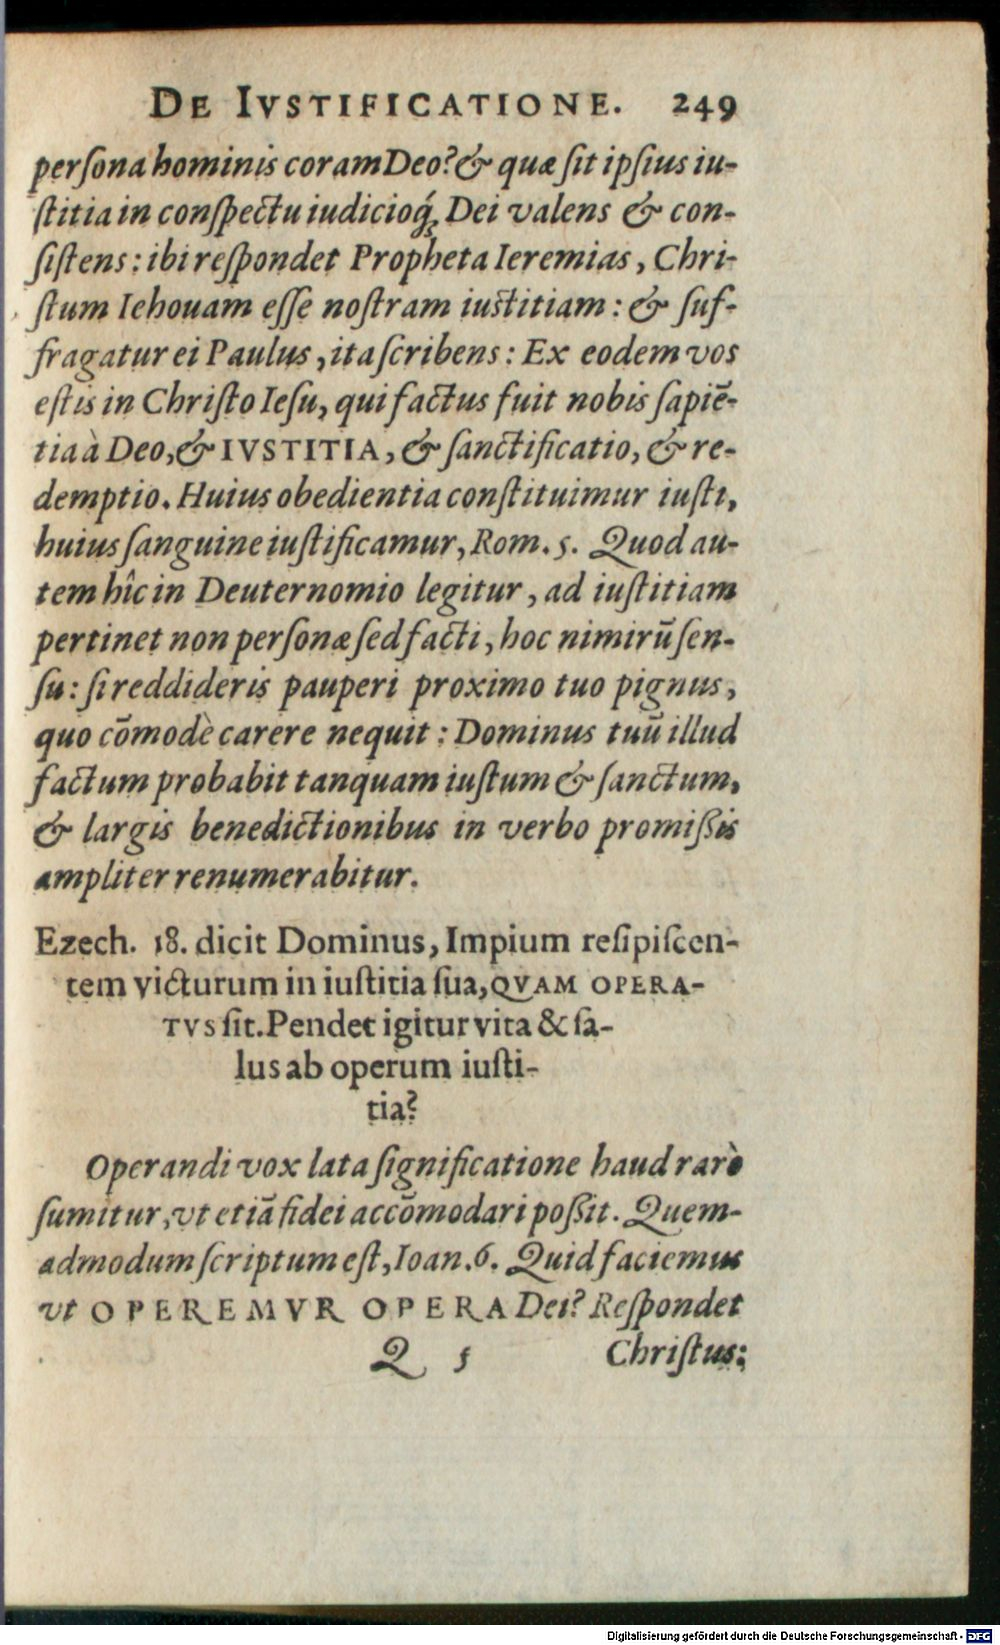 DE IVSTIFICATIONE. 249
perſona hominis coram Deo? & quæ ſit ipſius iu-
ſtitia in conſpectu iudicioq́ꝫ Dei valens & con-
ſiſtens: ibi reſpondet Propheta Ieremias, Chri-
ſtum Iehouam eſſe noſtram iuſtitiam: & ſuf-
fragatur ei Paulus, ita ſcribens: Ex eodem vos
eſtis in Chriſto Ieſu, qui factus fuit nobis ſapiē-
tia à Deo, & IVSTITIA, & ſanctificatio, & re-
demptio. Huius obedientia conſtituimur iuſti,
huius ſanguine iuſtificamur, Rom. 5. Quod au-
tem hîc in Deuternomio legitur, ad iuſtitiam
pertinet non perſonæ ſed facti, hoc nimirū ſen-
ſu: ſi reddideris pauperi proximo tuo pignus,
quo cōmodè carere nequit: Dominus tuū illud
factum probabit tanquam iuſtum & ſanctum,
& largis benedictionibus in verbo promißis
ampliter renumerabitur.
Ezech. 18. dicit Dominus, Impium reſipiſcen-
tem victurum in iuſtitia ſua, QVAM OPERA-
TVS ſit. Pendet igitur vita & ſa-
lus ab operum iuſti-
tia?
Operandi vox lata ſignificatione haud rarò
ſumitur, vt etiā fidei accōmodari poßit. Quem-
admodum ſcriptum eſt, Ioan. 6. Quid faciemus
vt OPEREMVR OPERA Dei? Reſpondet
Q 5 Chriſtus:
Digitalisierung gefördert durch die Deutsche Forschungsgemeinschaft - DFG